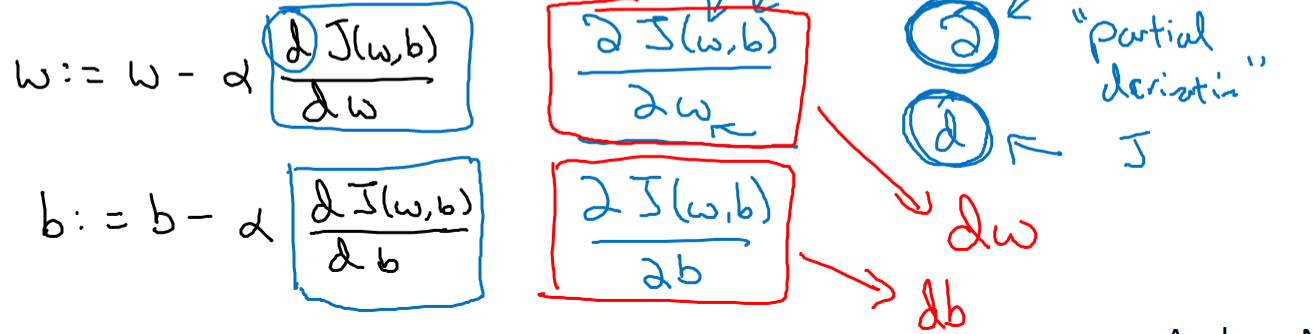 w := w - α d J(w,b) / dw
∂ J(w,b) / ∂w
∂ "partial
derivative"
d J
b := b - α d J(w,b) / db
∂ J(w,b) / ∂b
dw
db